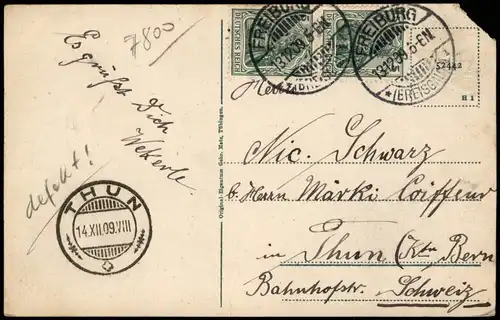 7800
Es grüßt
Dich
Wekerle.
defekt!
THUN
14.XII.09.VIII
Original-Eigentum Gebr. Metz, Tübingen.
DEUTSCHES REICH
FREIBURG
13.12.09.5-6N.
(BREISGAU)
FREIBURG
13.12.09.5-6N.
* (BREISGAU)
52442
B 1
Herrn
Nic. Schwarz
b. Herrn Märki Coiffeur
in Thun (Ktn Bern
Bahnhofstr. Schweiz